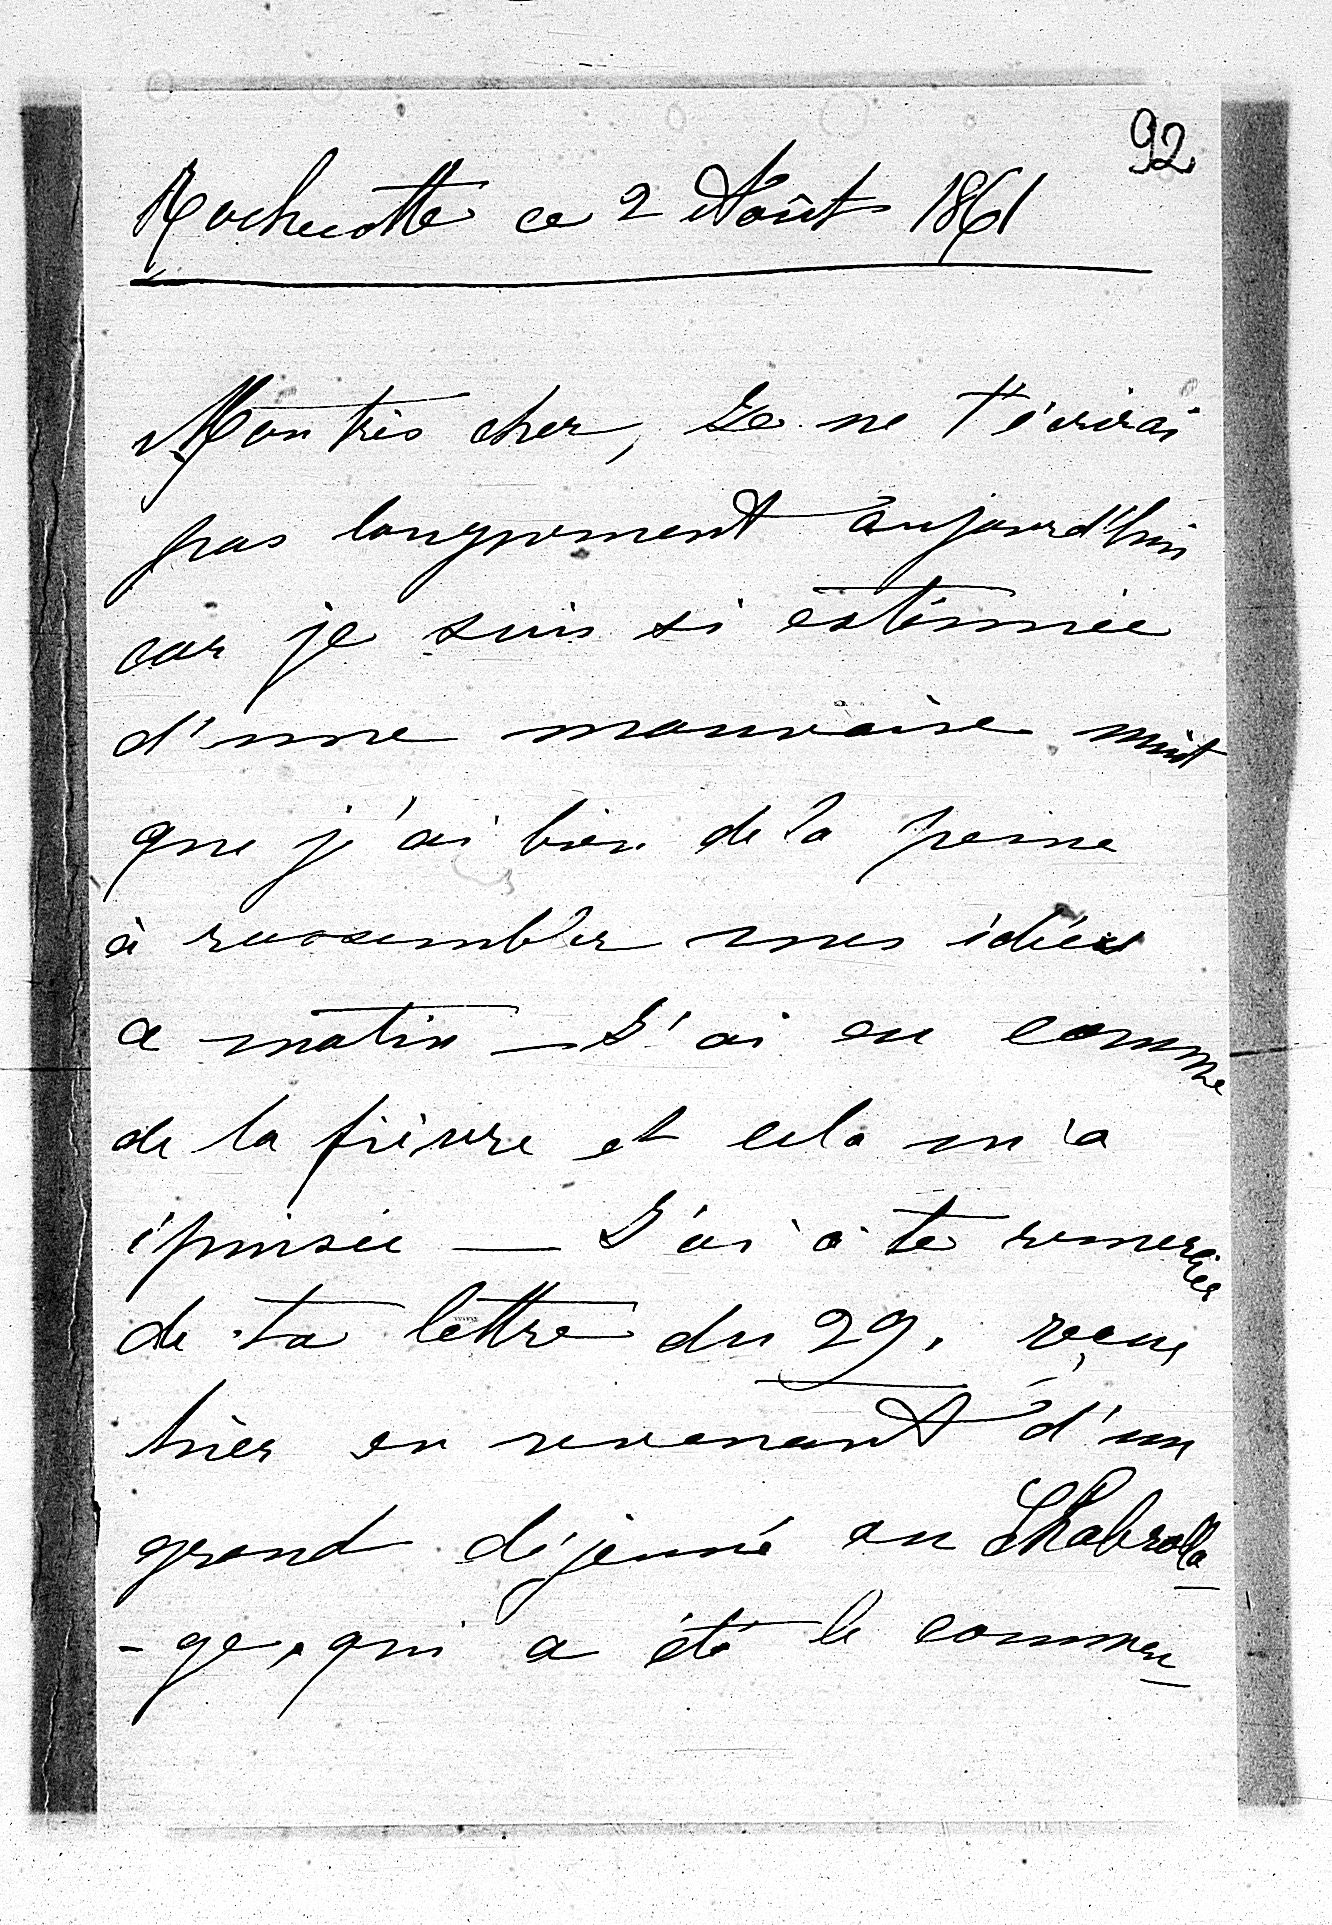 92
Rochecotte ce 2 Août 1861
Mon très cher, Je ne t'écrirai
pas longuement aujourd'hui
car je suis si exténuée
d'une mauvaise nuit
que j'ai bien de la peine
à rassembler mes idées
ce matin — J'ai eu comme
de la fièvre et cela m'a
épuisée — J'ai à te remercier
de ta lettre du 29. reçue
hier en revenant d'un
grand déjeuné au
- ge, qui a été le commen